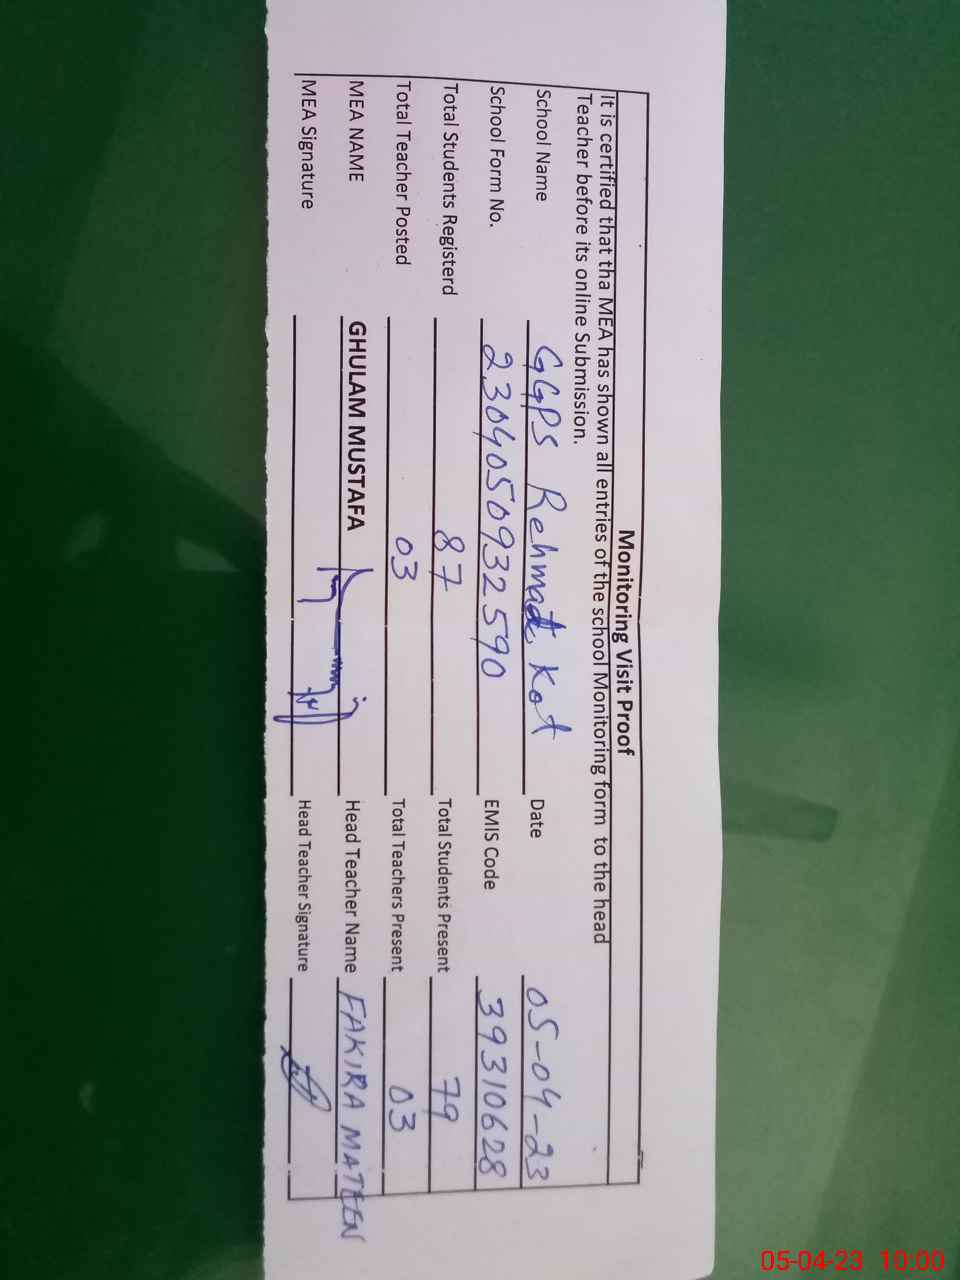 Monitoring Visit Proof
It is certified that tha MEA has shown all entries of the school Monitoring form to the head
Teacher before its online Submission.
School Name GGPS Rehmat Kot Date 05-04-23
School Form No. 2304050932590 EMIS Code 39310628
Total Students Registerd 87 Total Students Present 79
Total Teacher Posted 03 Total Teachers Present 03
MEA NAME GHULAM MUSTAFA Head Teacher Name FAKIRA MATEEN
MEA Signature Head Teacher Signature
05-04-23 10:00